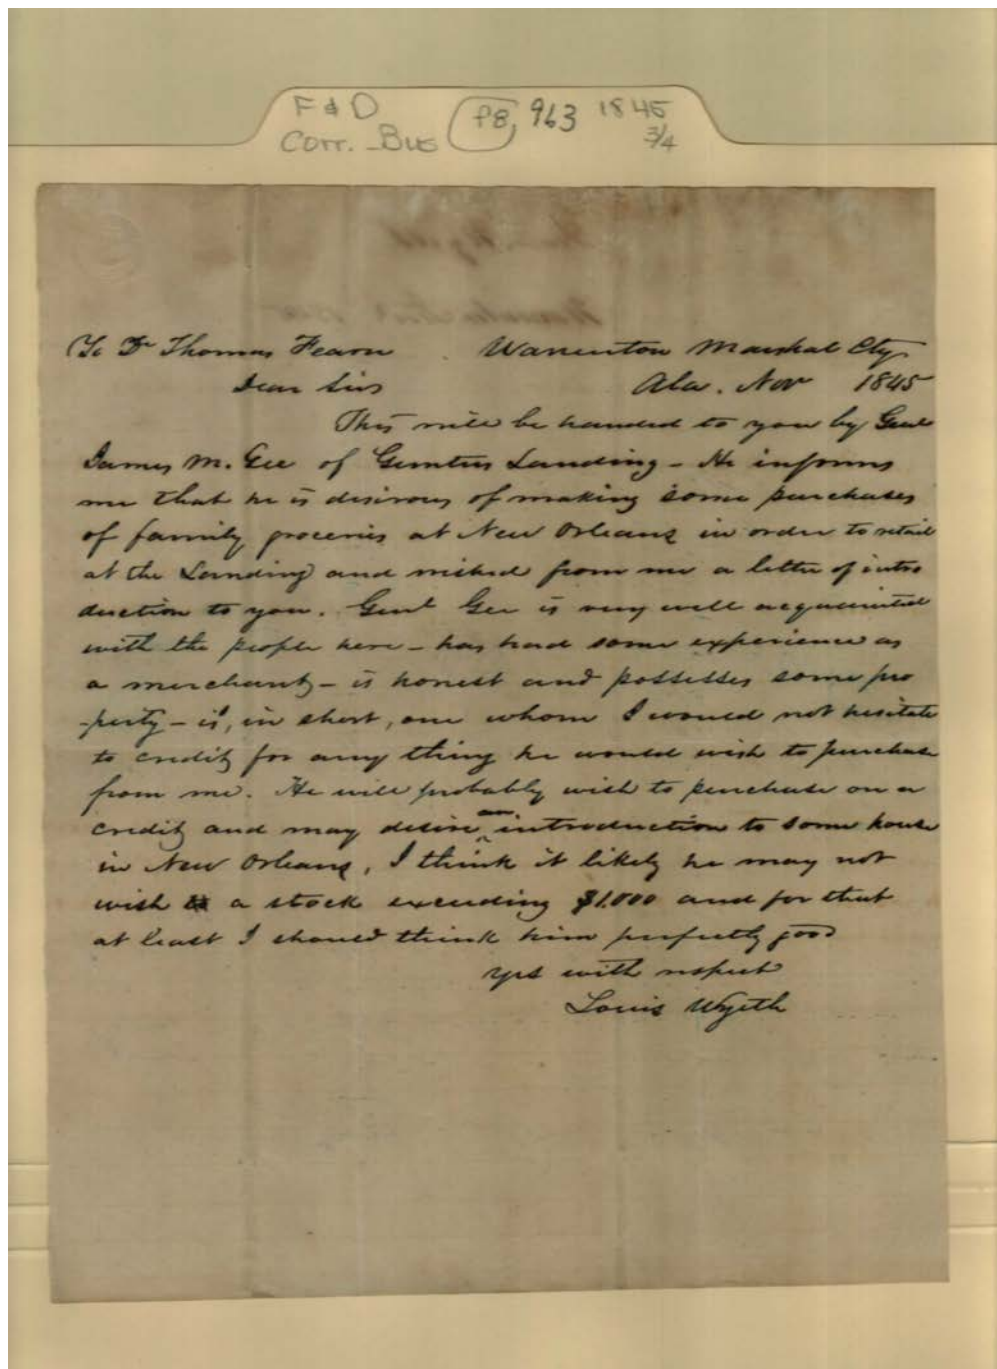 F & D P8, 963 1845
Corr. Bus 3/4
To Dr Thomas Fearn Warrenton Marshal Cty
Dear Sir Ala. Nov 1845
This will be handed to you by Genl
James M. Gee of Gunters Landing - He informs
me that he is desirous of making some purchases
of family groceries at New Orleans in order to retail
at the Landing and wished from me a letter of intro
duction to you. Genl Gee is very well acquainted
with the people here - has had some experience as
a merchant - is honest and possesses some pro
-perty - is, in short, one whom I would not hesitate
to credit for any thing he would wish to purchase
from me. He will probably wish to purchase on a
credit and may desire an introduction to some house
in New Orleans, I think it likely he may not
wish a stock exceeding $1.000 and for that
at least I should think him perfectly good
yrs with respect
Louis Wyeth